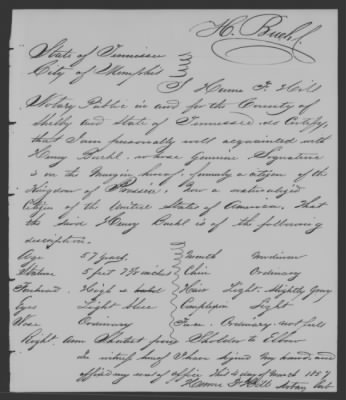 H. Buehl.
State of Tennessee
City of Memphis
I Hume F. Hill
Notary Public in and for the County of
Shelby and State of Tennessee do Certify,
that I am personally well acquainted with
Henry Buehl, whose Genuine Signature
is on the Margin hereof, formerly a citizen of the
Kingdom of Prussia, now a naturalized
Citizen of the United States of America. That
the said Henry Buehl is of the following
description.
Age 57 years Mouth Medium
Stature 5 feet 7 3/4 inches Chin Ordinary
Forehead High & bald Hair Light, Slightly Gray
Eyes Light blue Complexion Light
Nose Ordinary Face Ordinary, not full
Right arm from Sholder to Elbow
In witness hereof I have signed my hand, and
affixed my seal of office this 4 day of March 1857
Hume F Hill Notary Pub